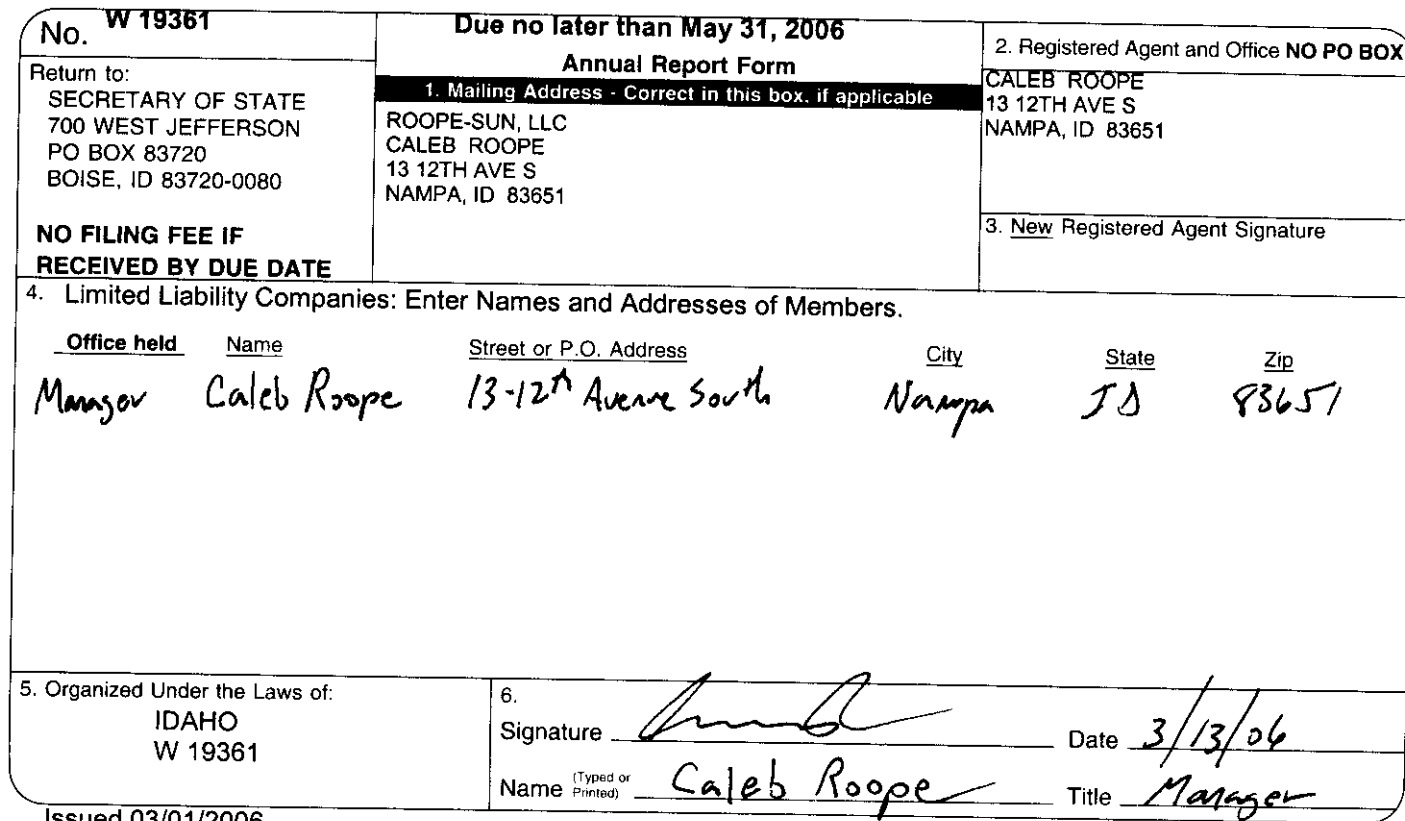 No. W 19361
Return to:
SECRETARY OF STATE
700 WEST JEFFERSON
PO BOX 83720
BOISE, ID 83720-0080
NO FILING FEE IF
RECEIVED BY DUE DATE
Due no later than May 31, 2006
Annual Report Form
1. Mailing Address - Correct in this box, if applicable
ROOPE-SUN, LLC
CALEB ROOPE
13 12TH AVE S
NAMPA, ID 83651
2. Registered Agent and Office NO PO BOX
CALEB ROOPE
13 12TH AVE S
NAMPA, ID 83651
3. New Registered Agent Signature
4. Limited Liability Companies: Enter Names and Addresses of Members.
Office held Name Street or P.O. Address City State Zip
Manager Caleb Roope 13-12th Avenue South Nampa ID 83651
5. Organized Under the Laws of:
IDAHO
W 19361
6.
Signature Date 3/13/06
Name (Typed or Printed) Caleb Roope Title Manager
Issued 03/01/2006